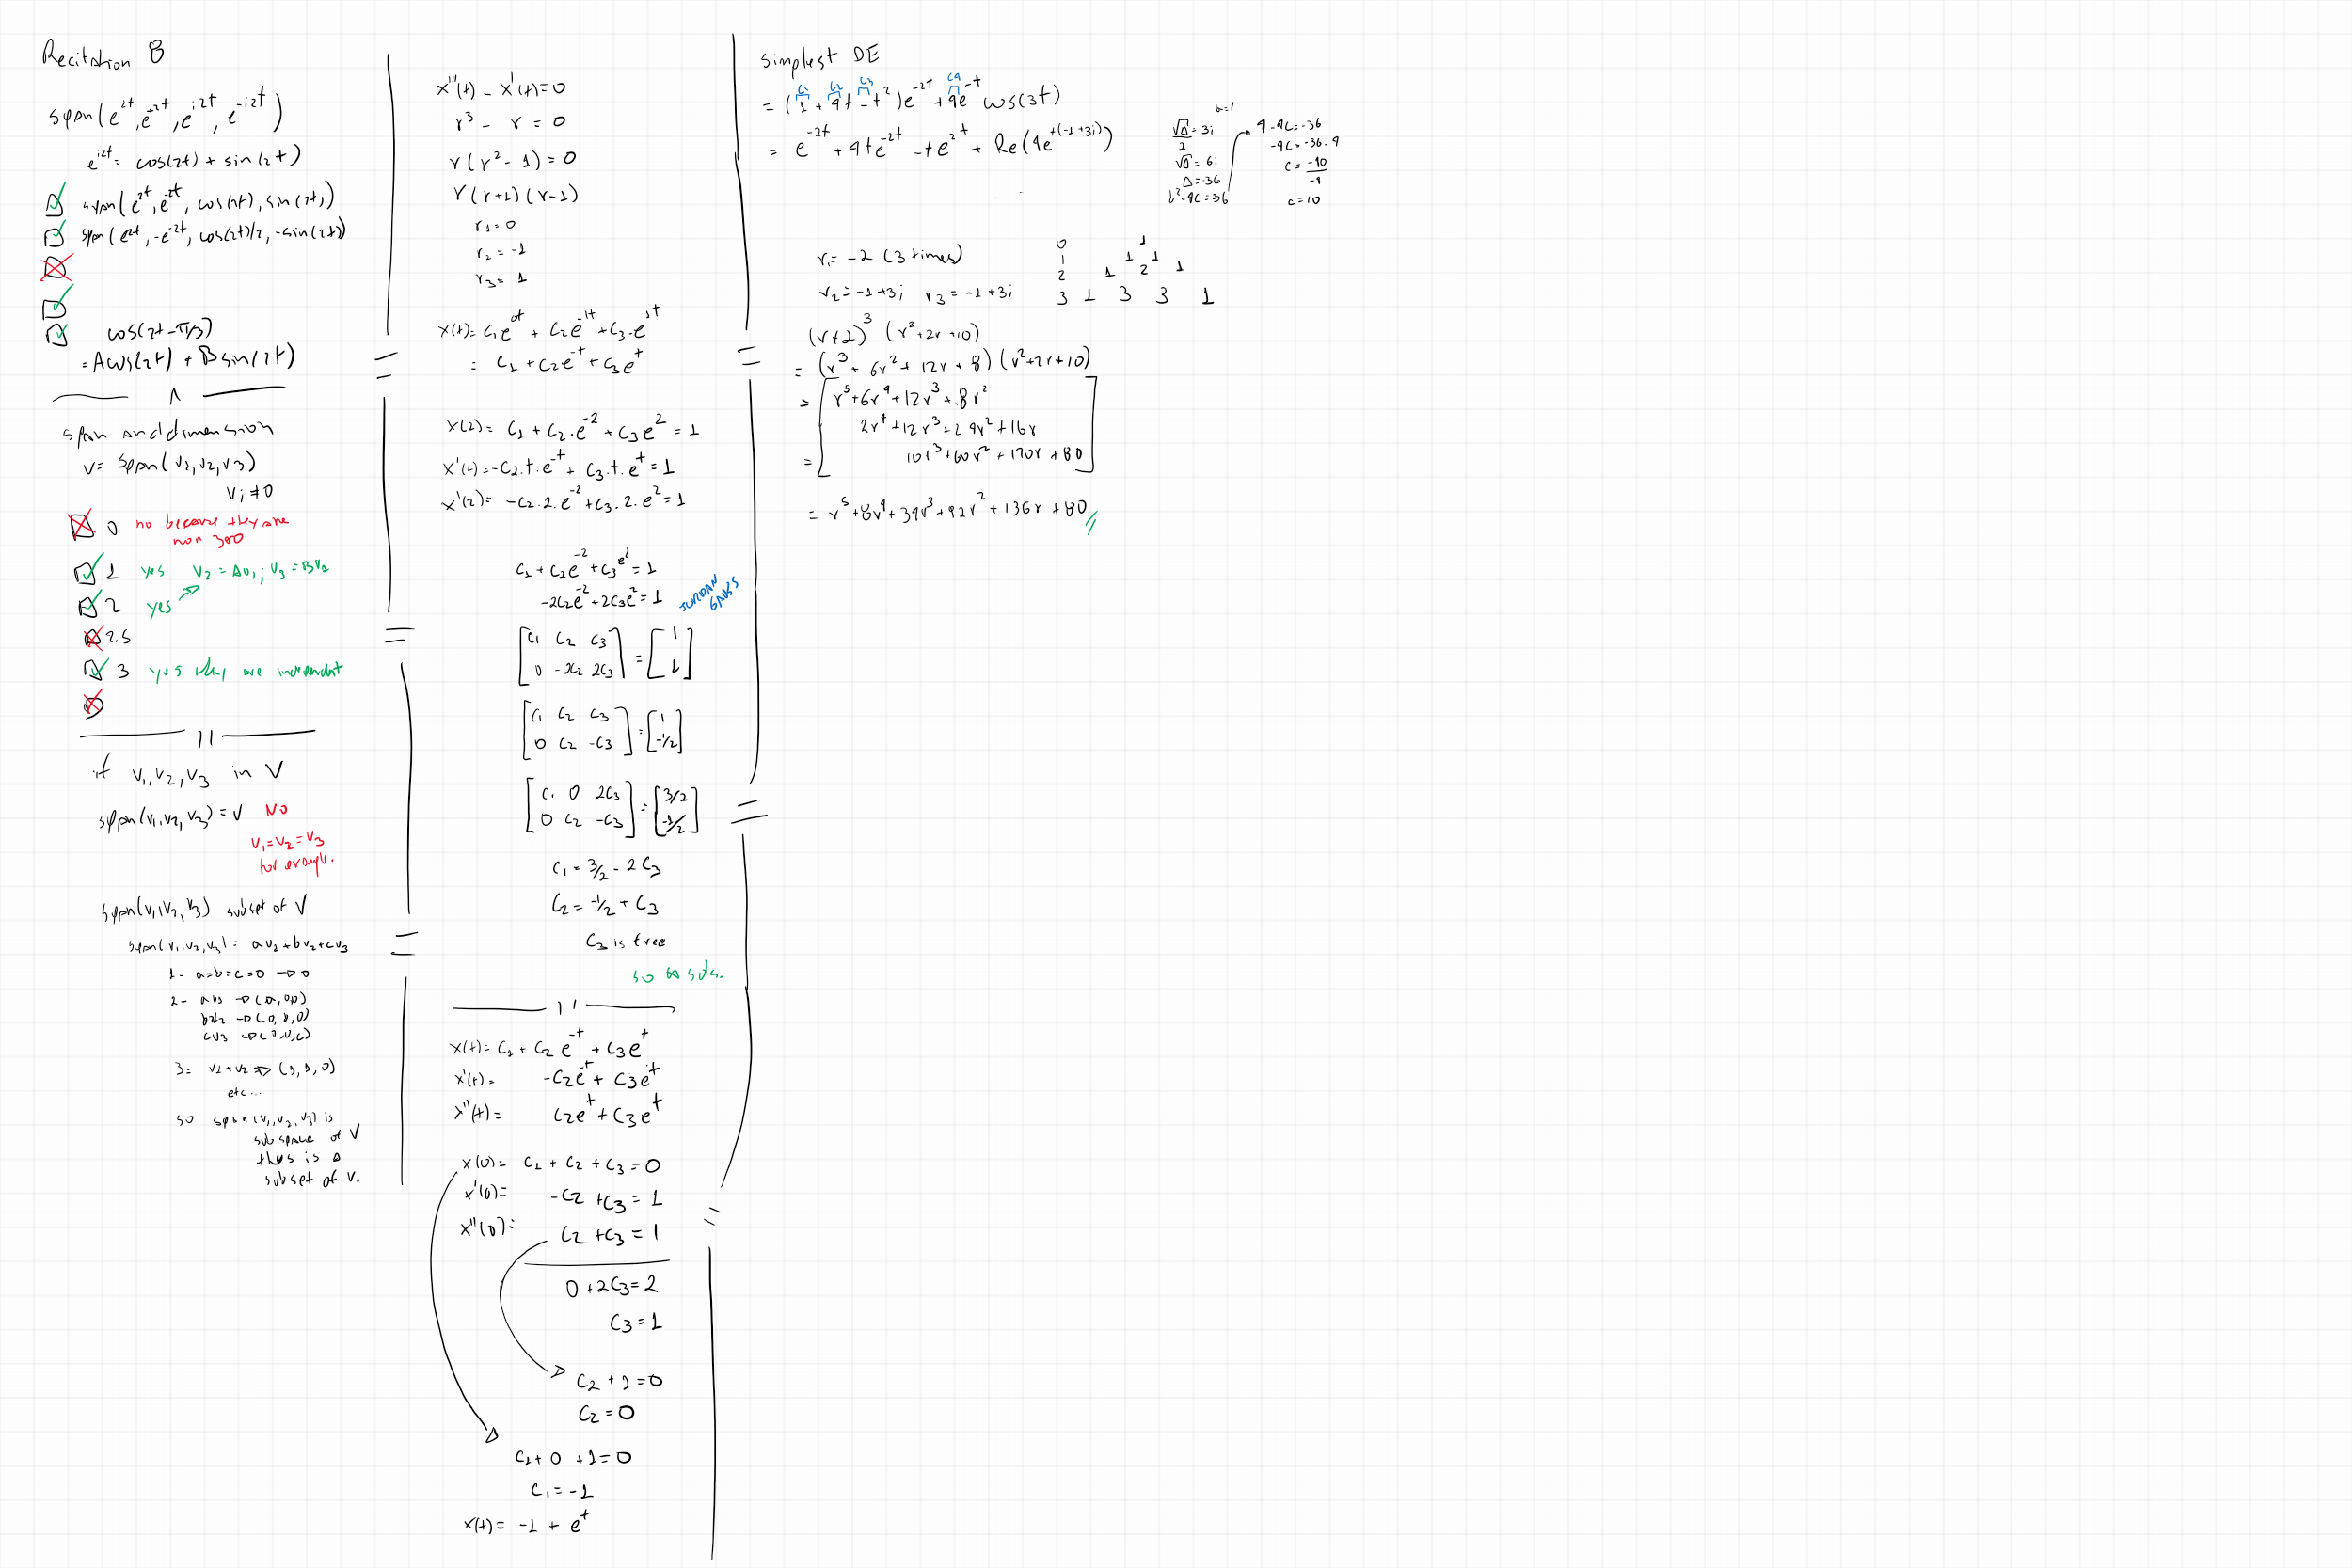 Recitation 8
span(e^2t, e^-2t, e^i2t, e^-i2t)
e^i2t = cos(2t) + sin(2t)
span(e^2t, e^-2t, cos(2t), sin(2t))
span(e^2t, -e^-2t, cos(2t)/2, -sin(2t))
cos(2t-π/3)
= Acos(2t) + Bsin(2t)
span and dimension
V = span(v1, v2, v3)
vi ≠ 0
0 no because they are
1 yes v2 = Av1; v3 = Bv1
2 yes
2.5
3 yes they are independent
if v1, v2, v3 in V
span(v1, v2, v3) = V NO
v1 = v2 = v3
for example.
span(v1, v2, v3) subset of V
span(v1, v2, v3) = av1 + bv2 + cv3
1- a=b=c=0 → 0
2- av1 → (a,0,0)
bv2 → (0,b,0)
cv3 → (0,0,c)
3- v1+v2 → (1,1,0)
etc...
so span(v1, v2, v3) is
subspace of V
thus is a
subset of V.
x'''(t) - x'(t) = 0
r^3 - r = 0
r(r^2 - 1) = 0
r(r+1)(r-1)
r1 = 0
r2 = -1
r3 = 1
x(t) = c1e^0t + c2e^-1t + c3.e^1t
= c1 + c2e^-t + c3e^t
x(2) = c1 + c2.e^-2 + c3e^2 = 1
x'(t) = -c2.t.e^-t + c3.t.e^t = 1
x'(2) = -c2.2.e^-2 + c3.2.e^2 = 1
c1 + c2e^-2 + c3e^2 = 1
-2c2e^-2 + 2c3e^2 = 1 JORDAN
GAUSS
[c1 c2 c3] = [1]
[0 -2c2 2c3] [1]
[c1 c2 c3] = [1]
[0 c2 -c3] [-1/2]
[c1 0 2c3] = [3/2]
[0 c2 -c3] [-1/2]
c1 = 3/2 - 2c3
c2 = -1/2 + c3
c3 is free
so ∞ sols.
x(t) = c1 + c2e^-t + c3e^t
x'(t) = -c2e^-t + c3e^t
x''(t) = c2e^t + c3e^t
x(0) = c1 + c2 + c3 = 0
x'(0) = -c2 + c3 = 1
x''(0) = c2 + c3 = 1
0 + 2c3 = 2
c3 = 1
c2 + 1 = 0
c2 = 0
c1 + 0 + 1 = 0
c1 = -1
x(t) = -1 + e^t
simplest DE
c1 c2 c3 c4
= (1 + 4t - t^2)e^-2t + 4e^-t cos(3t)
= e^-2t + 4te^-2t - te^2t + Re(4e^t(-1+3i))
b=1
√Δ/2 = 3i
√Δ = 6i
Δ = -36
b^2-4c = 36
4-4c = -36
-4c = -36-4
c = -40/-4
c = 10
r1 = -2 (3 times)
r2 = -1+3i r3 = -1+3i
0 1
1 1 1
2 1 2 1
3 1 3 3 1
(r+2)^3 (r^2+2r+10)
= (r^3 + 6r^2 + 12r + 8)(r^2+2r+10)
= r^5 + 6r^4 + 12r^3 + 8r^2
2r^4 + 12r^3 + 24r^2 + 16r
= 10r^3 + 60r^2 + 120r + 80
= r^5 + 8r^4 + 34r^3 + 92r^2 + 136r + 80